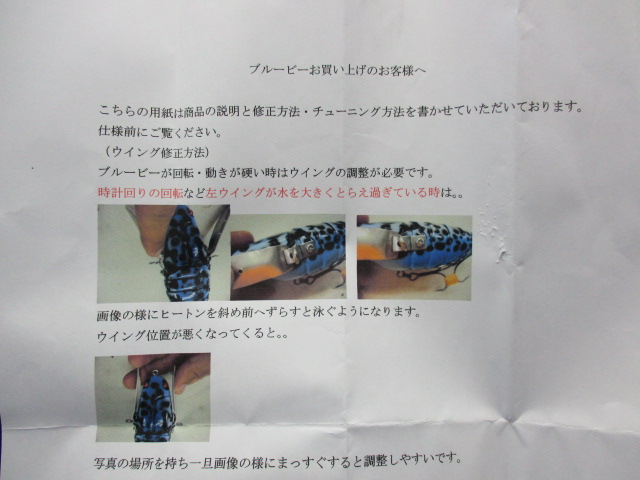 ブルービーお買い上げのお客様へ
こちらの用紙は商品の説明と修正方法・チューニング方法を書かせていただいております。
仕様前にご覧ください。
（ウイング修正方法）
ブルービーが回転・動きが硬い時はウイングの調整が必要です。
時計回りの回転など左ウイングが水を大きくとらえ過ぎている時は。。
画像の様にヒートンを斜め前へずらすと泳ぐようになります。
ウイング位置が悪くなってくると。。
写真の場所を持ち一旦画像の様にまっすぐすると調整しやすいです。